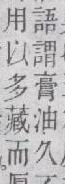 語謂膏油久
用以多藏而